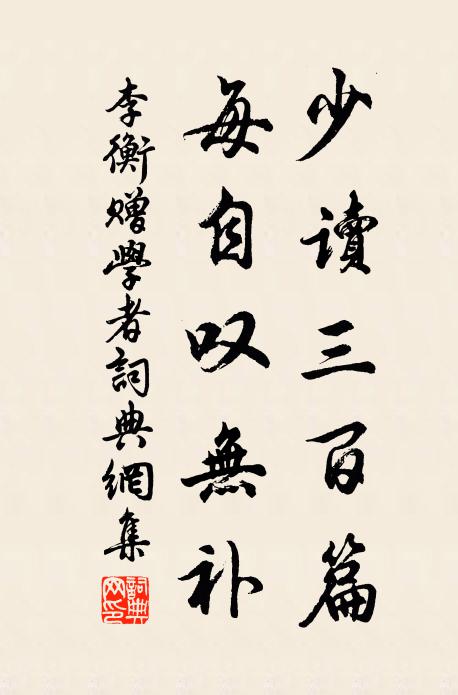 少讀三百篇
每自叹無补
李衡贈學者詞典網集
詞典网印